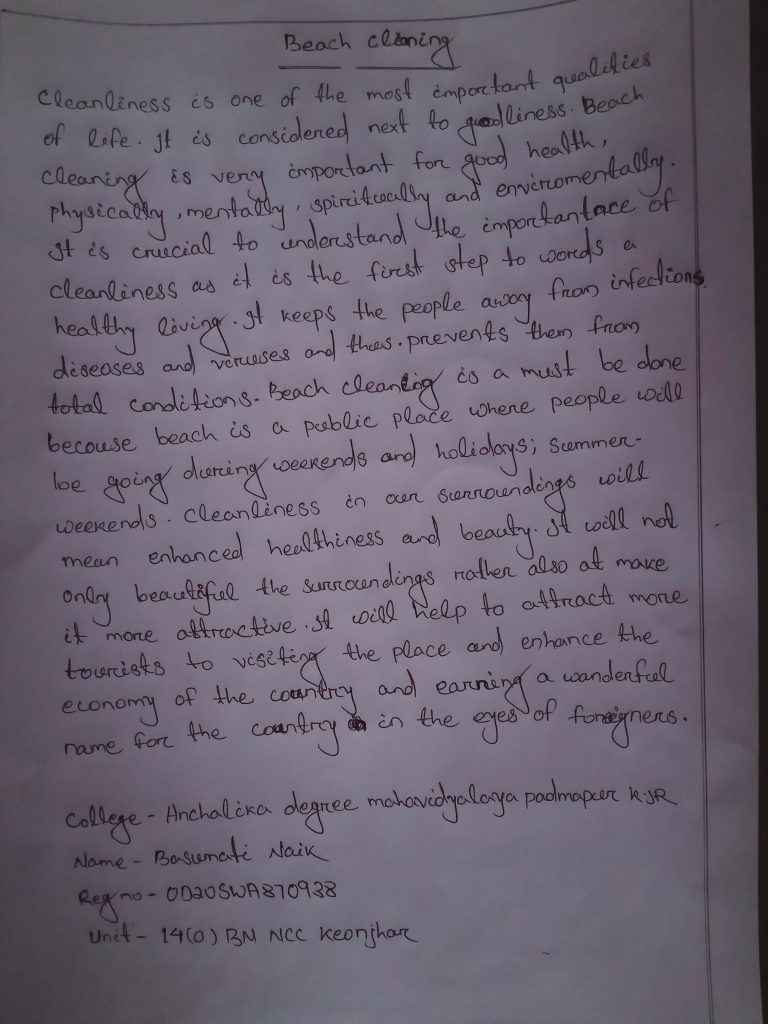 Beach cleaning
Cleanliness is one of the most important qualities
of life. It is considered next to godliness. Beach
cleaning is very important for good health,
physically, mentally, spiritually and enviromentally.
It is crucial to understand the importantace of
cleanliness as it is the first step to words a
healthy living. It keeps the people away from infections
diseases and viruses and thus. prevents them from
total conditions. Beach cleanig is a must be done
becouse beach is a public place where people will
be going during weekends and holidays; summer-
weekends. Cleanliness in our surroundings will
mean enhanced healthiness and beauty. It will not
only beautiful the surroundings rather also at make
it more attractive. It will help to attract more
tourists to visiting the place and enhance the
economy of the country and earning a wanderful
name for the country in the eyes of foreigners.
College - Anchalika degree mahavidyalaya padmapur KJR
Name - Basumati Naik
Reg no - OD20SWA870938
Unit - 14(O) BN NCC Keonjhar